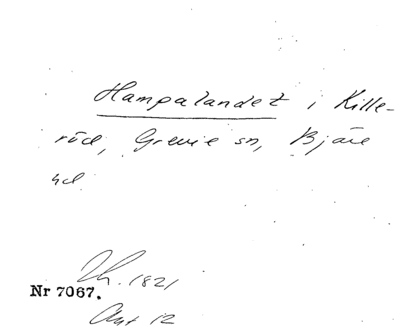 Hampalandet i Kille-
röd, Grevie sn, Bjäre
hd
1821
Nr 7067.
Akt 12